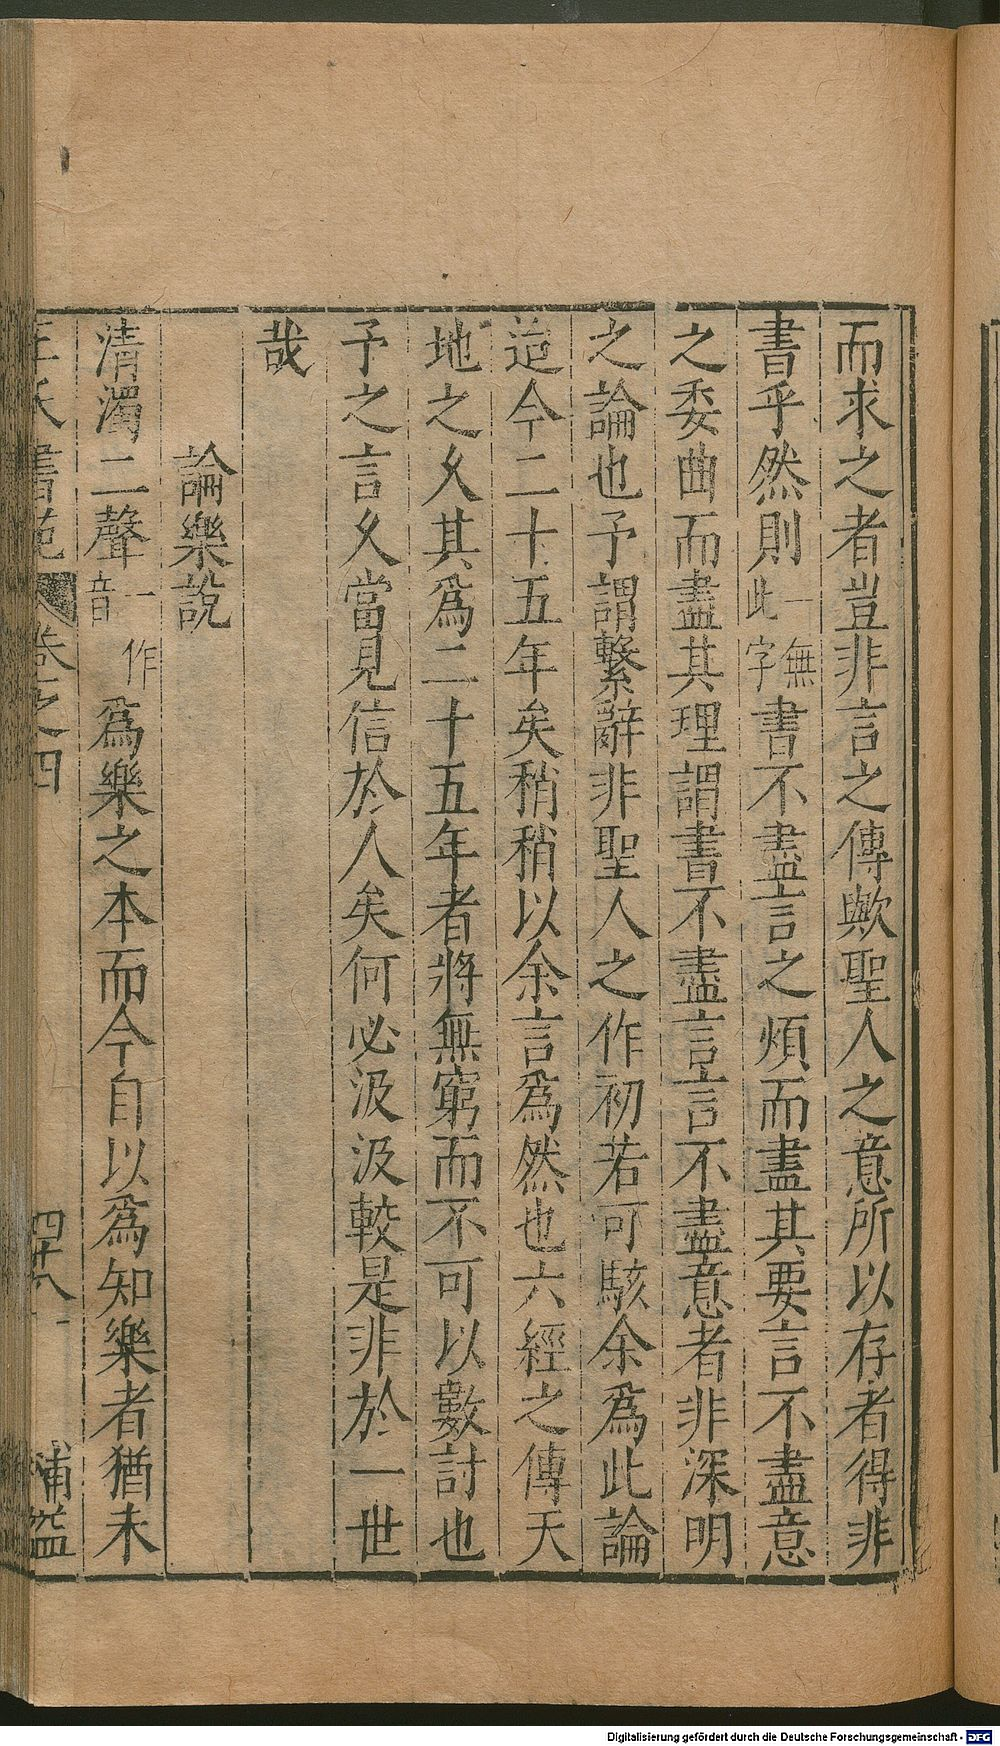 而求之者豈非言之傳歟聖人之意所以存者得非
書乎然則一無此字書不盡言之煩而盡其要言不盡意
之委曲而盡其理謂書不盡言言不盡意者非深明
之論也予謂繫辭非聖人之作初若可駭余爲此論
迨今二十五年矣稍稍以余言爲然也六經之傳天
地之久其爲二十五年者將無窮而不可以數討也
予之言久當見信於人矣何必汲汲較是非於一世
哉
論樂說
清濁二聲一作音爲樂之本而今自以爲知樂者猶未
王氏書苑 卷之四 四十八 補益
Digitalisierung gefördert durch die Deutsche Forschungsgemeinschaft - DFG